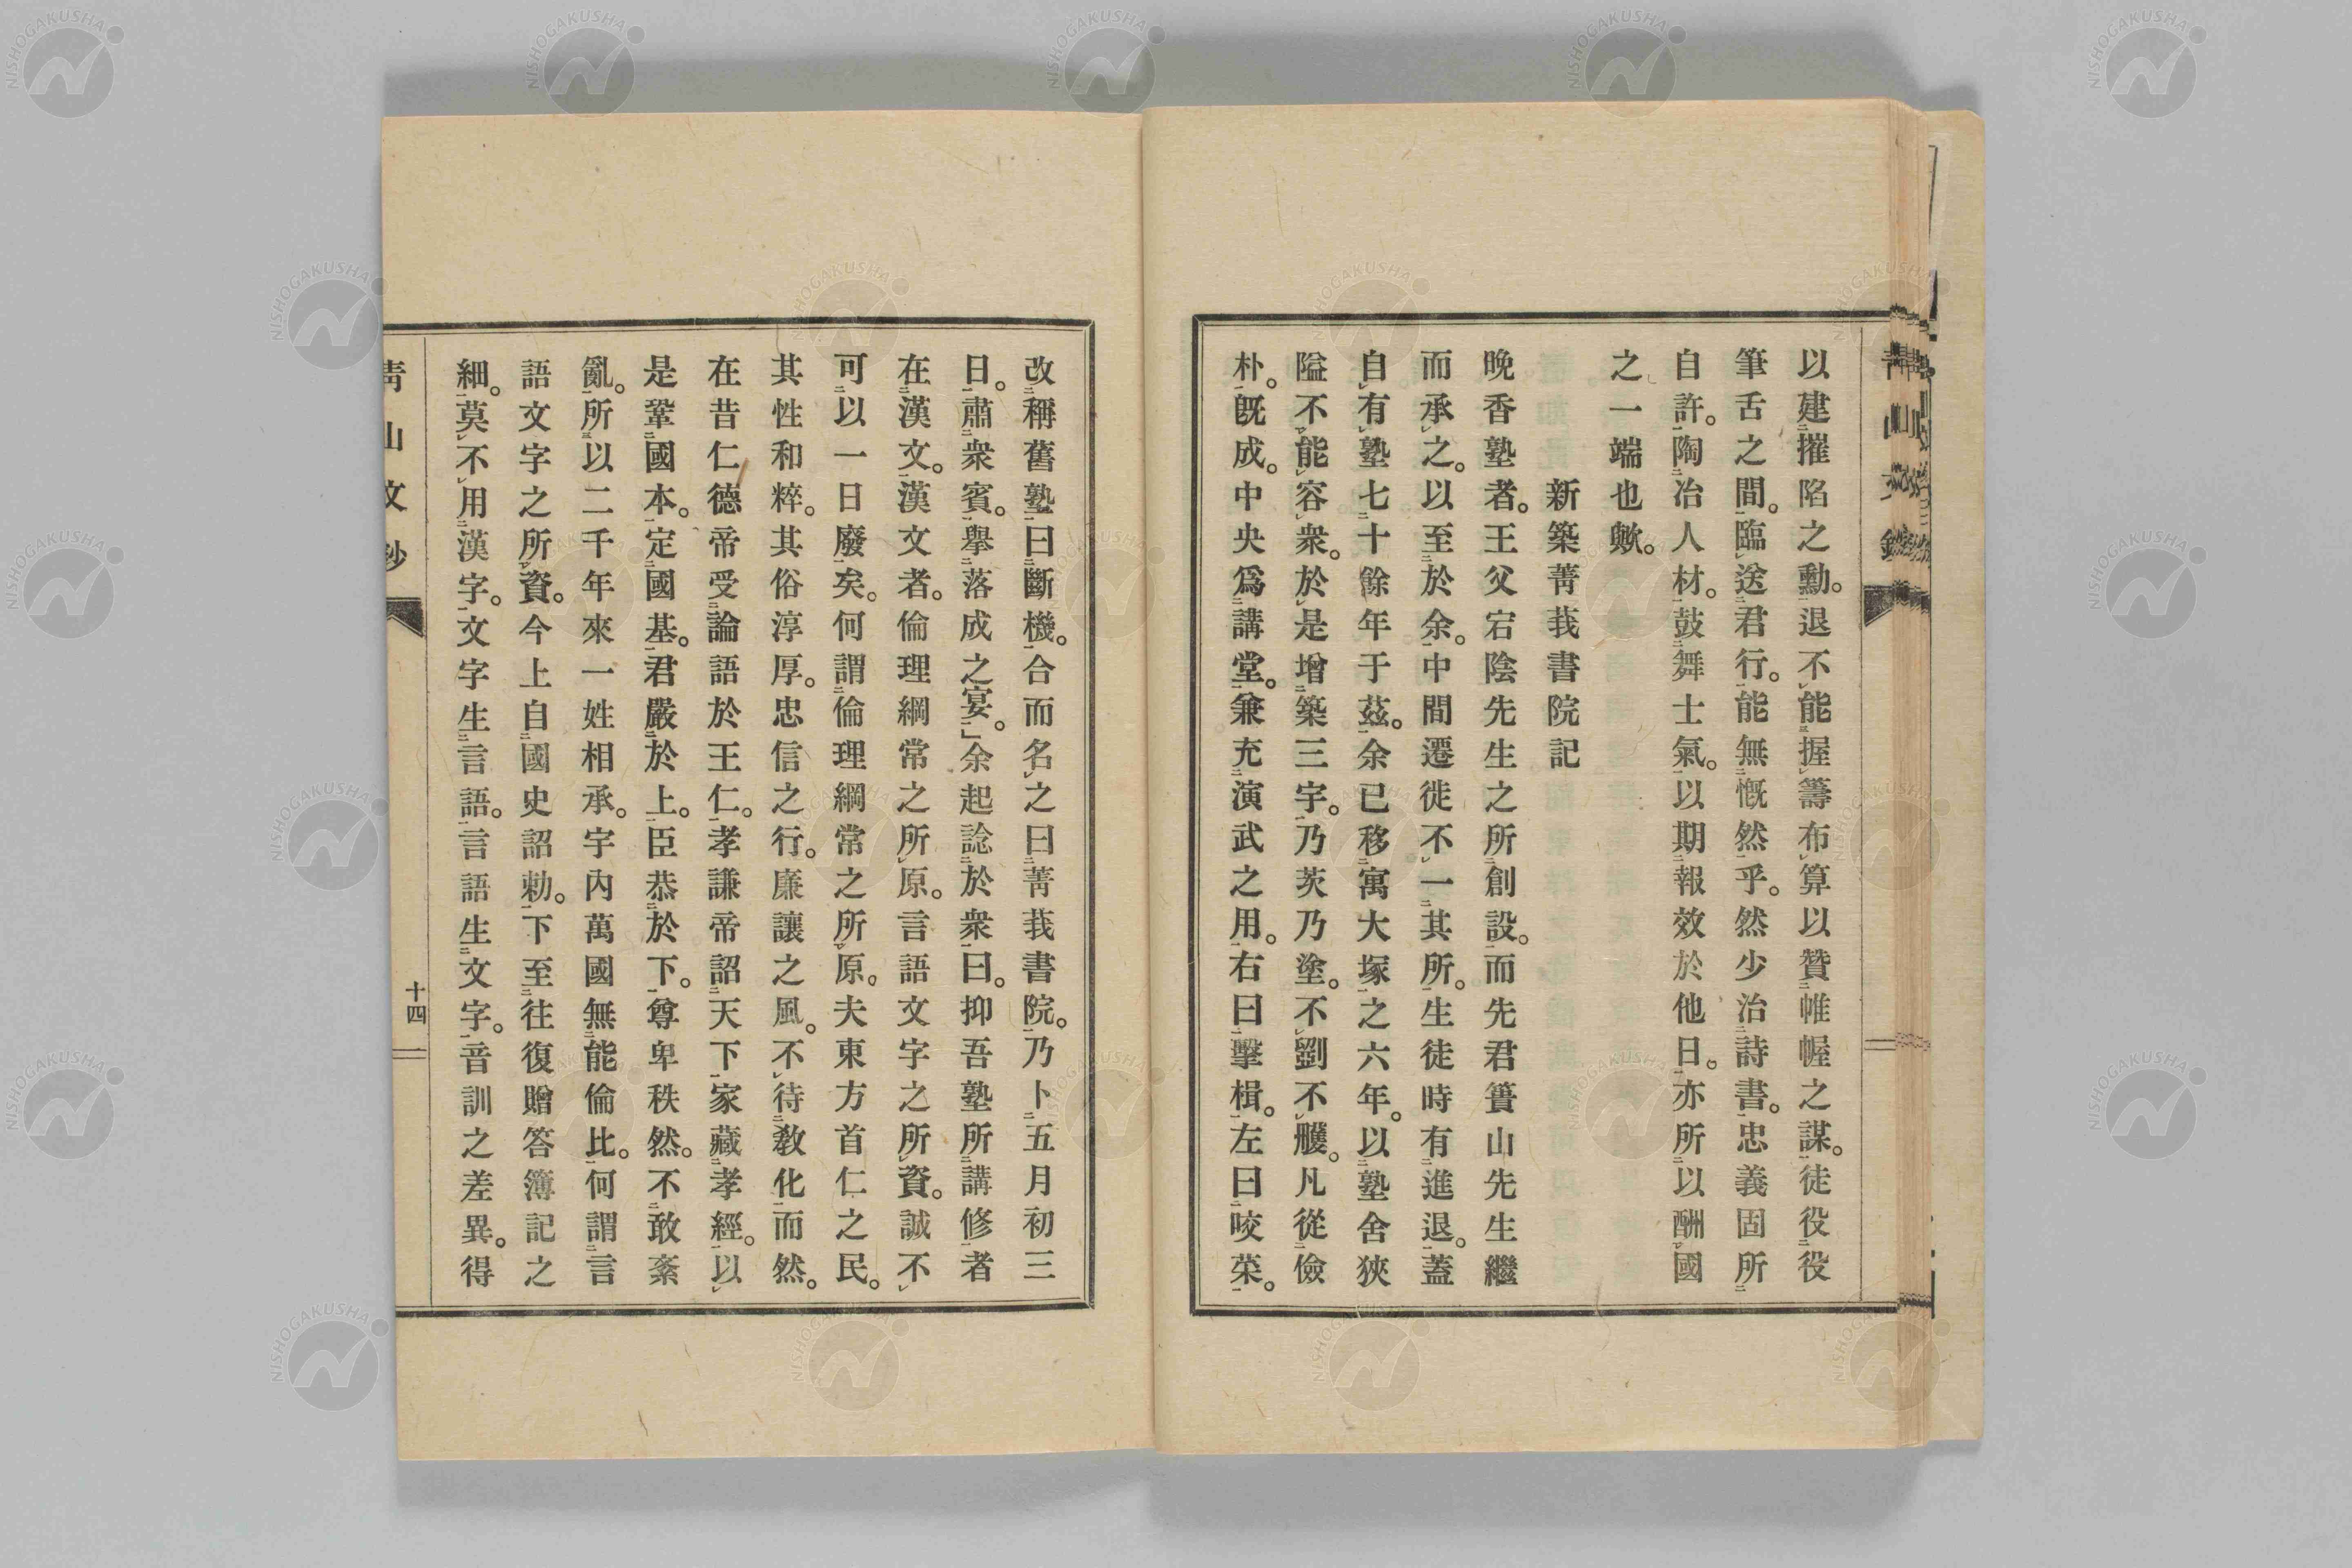 以建摧陷之勳。退不能握籌布算以贊帷幄之謀。徒役役
筆舌之間。臨送君行。能無慨然乎。然少治詩書。忠義固所
自許。陶冶人材。鼓舞士氣。以期報效於他日。亦所以酬國
之一端也歟。
新築菁莪書院記
晩香塾者。王父宕陰先生之所創設。而先君簣山先生繼
而承之。以至於余。中間遷徙不一其所。生徒時有進退。蓋
自有塾七十餘年于茲。余已移寓大塚之六年。以塾舍狹
隘不能容衆。於是增築三宇。乃茨乃塗。不劉不雘。凡從儉
朴。既成。中央爲講堂。兼充演武之用。右曰擊楫。左曰咬菜。
改稱舊塾曰斷機。合而名之曰菁莪書院。乃卜五月初三
日。肅衆賓。擧落成之宴。」余起諗於衆曰。抑吾塾所講修者
在漢文。漢文者。倫理綱常之所原。言語文字之所資。誠不
可以一日廢矣。何謂倫理綱常之所原。夫東方首仁之民。
其性和粹。其俗淳厚。忠信之行。廉讓之風。不待敎化而然。
在昔仁德帝受論語於王仁。孝謙帝詔天下家藏孝經。以
是鞏國本。定國基。君嚴於上。臣恭於下。尊卑秩然。不敢紊
亂。所以二千年來一姓相承。宇內萬國無能倫比。何謂言
語文字之所資。今上自國史詔勅。下至往復贈答簿記之
細。莫不用漢字。文字生言語。言語生文字。音訓之差異。得
靑山文鈔
十四
NISHOGAKUSHA